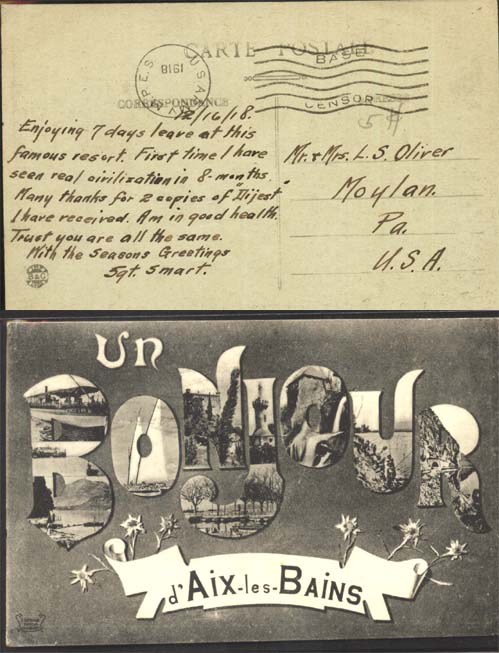 CARTE POSTALE
1918
BASE
CENSOR
CORRESPONDANCE
12/16/18.
Enjoying 7 days leave at this
famous resort. First time I have
seen real civilization in 8-months.
Many thanks for 2 copies of "Dijest"
I have received. Am in good health.
Trust you are all the same.
With the Seasons Greetings
Sgt. Smart.
Mr. & Mrs. L. S. Oliver
Moylan.
Pa.
U.S.A.
B&G
Un
BONJOUR
d'Aix-les-Bains